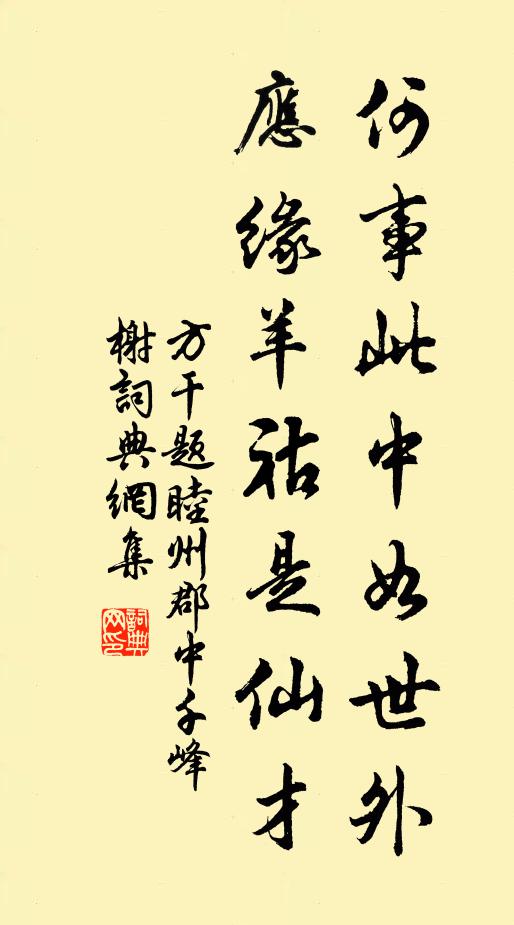 何事此中如世外
應緣羊祜是仙才
方干题睦州郡中千峰
榭詞典網集
詞典
网印